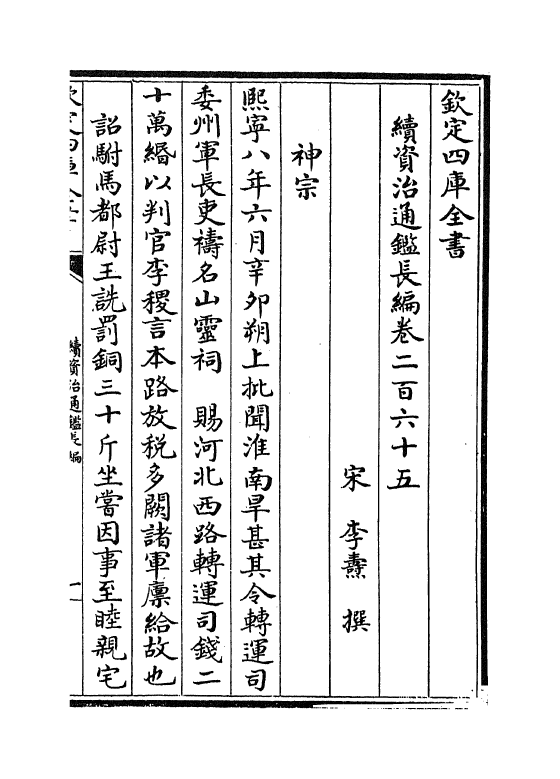 欽定四庫全書
續資治通鑑長編卷二百六十五
宋 李燾 撰
神宗
熙寧八年六月辛卯朔上批聞淮南旱甚其令轉運司
委州軍長吏禱名山靈祠 賜河北西路轉運司錢二
十萬緡以判官李稷言本路放税多闕諸軍廪給故也
詔駙馬都尉王詵罰銅三十斤坐嘗因事至睦親宅
欽定四庫全書
續資治通鑑長編
一